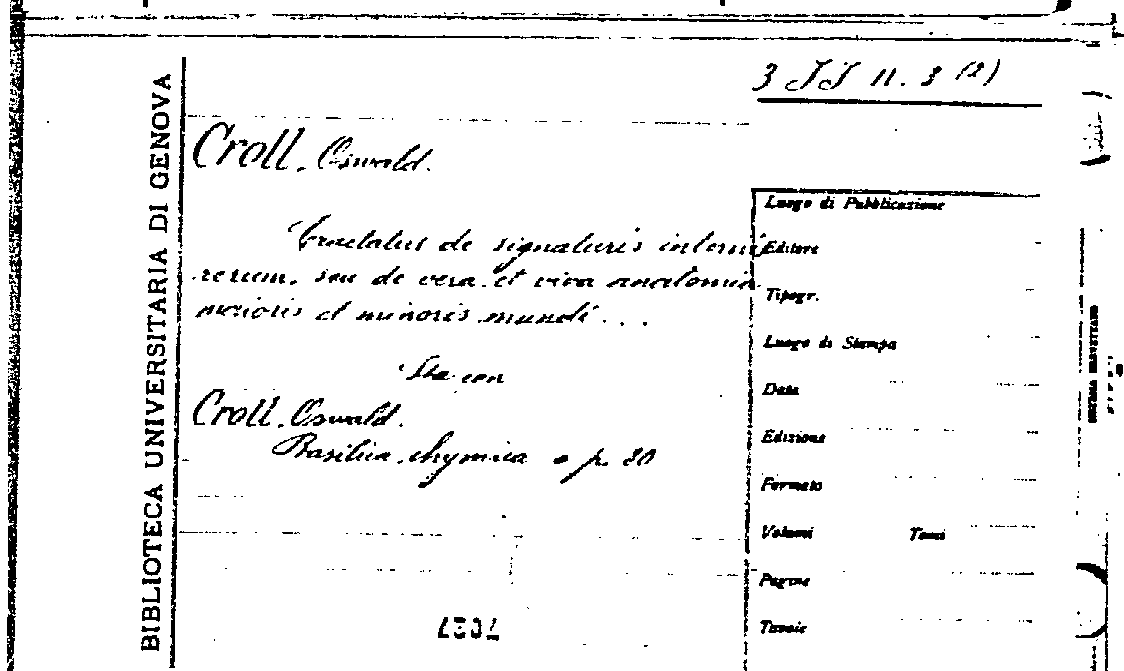 BIBLIOTECA UNIVERSITARIA DI GENOVA
3 JJ II. 3 (2)
Croll, Oswald.
Tractatus de signaturis interni
rerum, seu de vera et viva anatomia
maioris et minoris mundi ...
Sta con
Croll, Oswald.
Basilica chymica a p. 80
Luogo di Pubblicazione
Editore
Tipogr.
Luogo di Stampa
Data
Edizione
Formato
Volumi Tomi
Pagine
Tavole